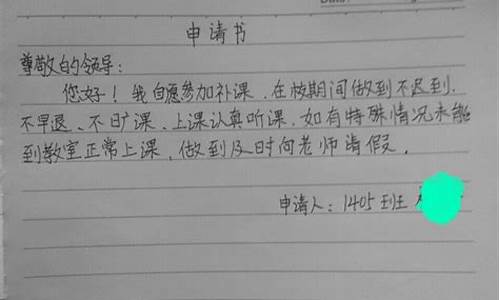 申请书
尊敬的领导：
您好！我自愿参加补课．在校期间做到不迟到．
不早退、不旷课、上课认真听课．如有特殊情况未能
到教室正常上课，做到及时向老师请假．
申请人：1405班